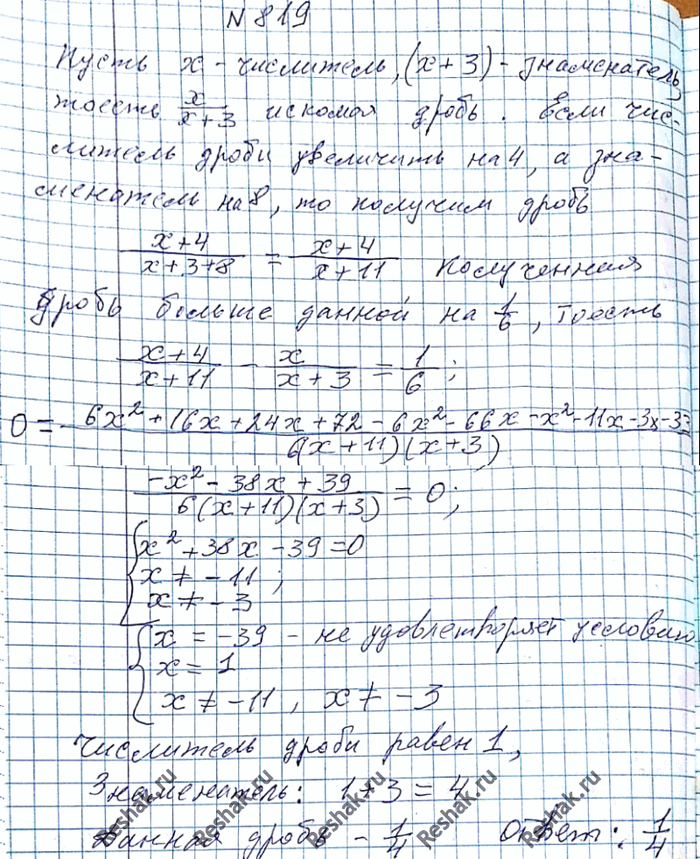 № 819
Пусть x - числитель, (x+3) - знаменатель,
тоесть x/(x+3) искомая дробь. Если чис-
литель дроби увеличить на 4, а зна-
менатель на 8, то получим дробь
(x+4)/(x+3+8) = (x+4)/(x+11) Полученная
дробь больше данной на 1/6, тоесть
(x+4)/(x+11) - x/(x+3) = 1/6;
0 = (6x²+16x+24x+72-6x²-66x-x²-11x-3x-33)/(6(x+11)(x+3))
(-x²-38x+39)/(6(x+11)(x+3)) = 0;
x²+38x-39=0
x ≠ -11;
x ≠ -3
x = -39 - не удовлетворяет условию
x = 1
x ≠ -11, x ≠ -3
Числитель дроби равен 1,
Знаменатель: 1+3=4
Данная дробь - 1/4 Ответ: 1/4
Reshak.ru
Reshak.ru
Reshak.ru
Reshak.ru
Reshak.ru